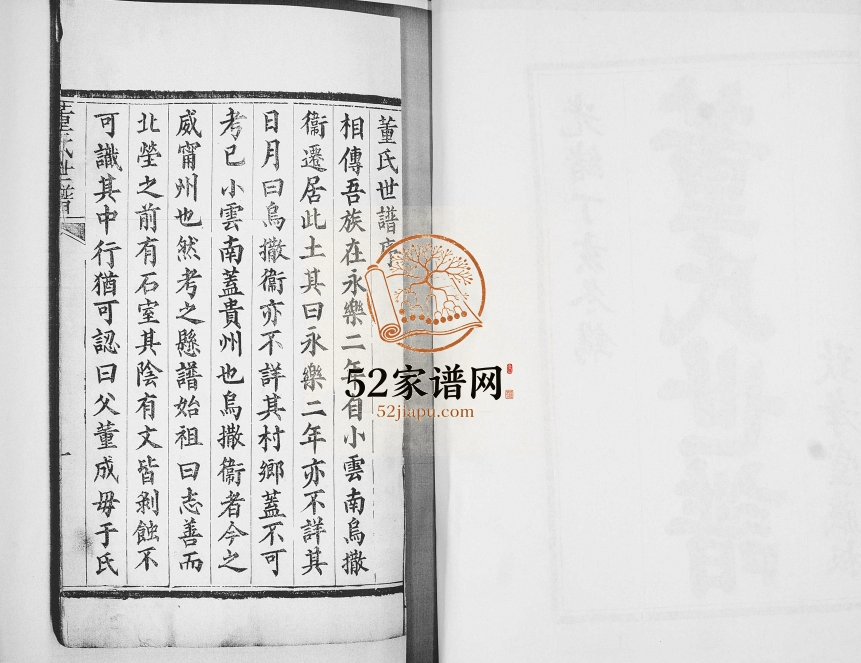 董氏世譜序
相傳吾族在永樂二年自小雲南烏撒
衞遷居此土其曰永樂二年亦不詳其
日月曰烏撒衞亦不詳其村鄉蓋不可
考已小雲南蓋貴州也烏撒衞者今之
威甯州也然考之懸譜始祖曰志善而
北塋之前有石室其陰有文皆剥蝕不
可識其中行猶可認曰父董成毋于氏
董氏世譜
一
52家谱网
52jiapu.com